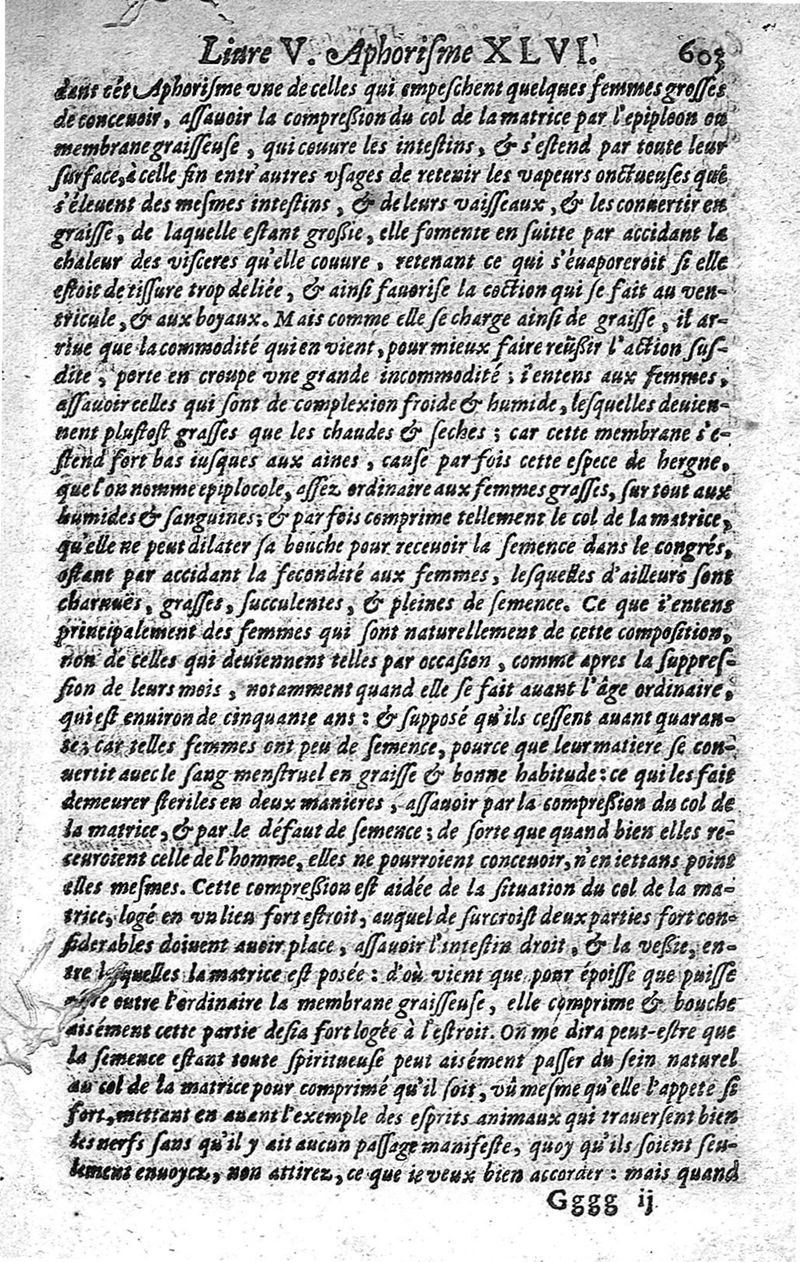 Liure V. Aphoriſme XLVI. 603
dans cét Aphoriſme vne de celles qui empeſchent quelques femmes groſſes
de conceuoir, aſſauoir la compreſſion du col de la matrice par l'epiploon ou
membrane graiſſeuſe, qui couure les inteſtins, & s'eſtend par toute leur
ſurface, à celle fin entr'autres vſages de retenir les vapeurs onctueuſes qui
s'éleuent des meſmes inteſtins, & de leurs vaiſſeaux, & les conuertir en
graiſſe, de laquelle eſtant groſſie, elle fomente en ſuitte par accidant la
chaleur des viſceres qu'elle couure, retenant ce qui s'éuaporeroit ſi elle
eſtoit de tiſſure trop deliée, & ainſi fauoriſe la coction qui ſe fait au ven-
tricule, & aux boyaux. Mais comme elle ſe charge ainſi de graiſſe, il ar-
riue que la commodité qui en vient, pour mieux faire reüſſir l'action ſuſ-
dite, porte en croupe vne grande incommodité; i'entens aux femmes,
aſſauoir celles qui ſont de complexion froide & humide, leſquelles deuien-
nent pluſtoſt graſſes que les chaudes & ſeches; car cette membrane s'e-
ſtend fort bas iuſques aux aines, cauſe par fois cette eſpece de hergne,
que l'on nomme epiplocole, aſſez ordinaire aux femmes graſſes, ſur tout aux
humides & ſanguines; & par fois comprime tellement le col de la matrice,
qu'elle ne peut dilater ſa bouche pour receuoir la ſemence dans le congrés,
oſtant par accidant la fecondité aux femmes, leſquelles d'ailleurs ſont
charnuës, graſſes, ſucculentes, & pleines de ſemence. Ce que i'entens
principalement des femmes qui ſont naturellement de cette compoſition,
non de celles qui deuiennent telles par occaſion, comme apres la ſuppreſ-
ſion de leurs mois, notamment quand elle ſe fait auant l'âge ordinaire,
qui eſt enuiron de cinquante ans: & ſuppoſé qu'ils ceſſent auant quaran-
te; car telles femmes ont peu de ſemence, pource que leur matiere ſe con-
uertit auec le ſang menſtruel en graiſſe & bonne habitude: ce qui les fait
demeurer ſteriles en deux manieres, aſſauoir par la compreſſion du col de
la matrice, & par le défaut de ſemence; de ſorte que quand bien elles re-
ceuroient celle de l'homme, elles ne pourroient conceuoir, n'en iettans point
elles meſmes. Cette compreſſion eſt aidée de la ſituation du col de la ma-
trice, logé en vn lieu fort eſtroit, auquel de ſurcroiſt deux parties fort con-
ſiderables doiuent auoir place, aſſauoir l'inteſtin droit, & la veſſie, en-
tre leſquelles la matrice eſt poſée: d'où vient que pour époiſſe que puiſſe
eſtre outre l'ordinaire la membrane graiſſeuſe, elle comprime & bouche
aisément cette partie deſia fort logée à l'eſtroit. On me dira peut-eſtre que
la ſemence eſtant toute ſpiritueuſe peut aisément paſſer du ſein naturel
au col de la matrice pour comprimé qu'il ſoit, vû meſme qu'elle l'appete ſi
fort, mettant en auant l'exemple des eſprits animaux qui trauerſent bien
les nerfs ſans qu'il y ait aucun paſſage manifeſte, quoy qu'ils ſoient ſeu-
lement enuoyez, non attirez, ce que ie veux bien accorder: mais quand
Gggg ij